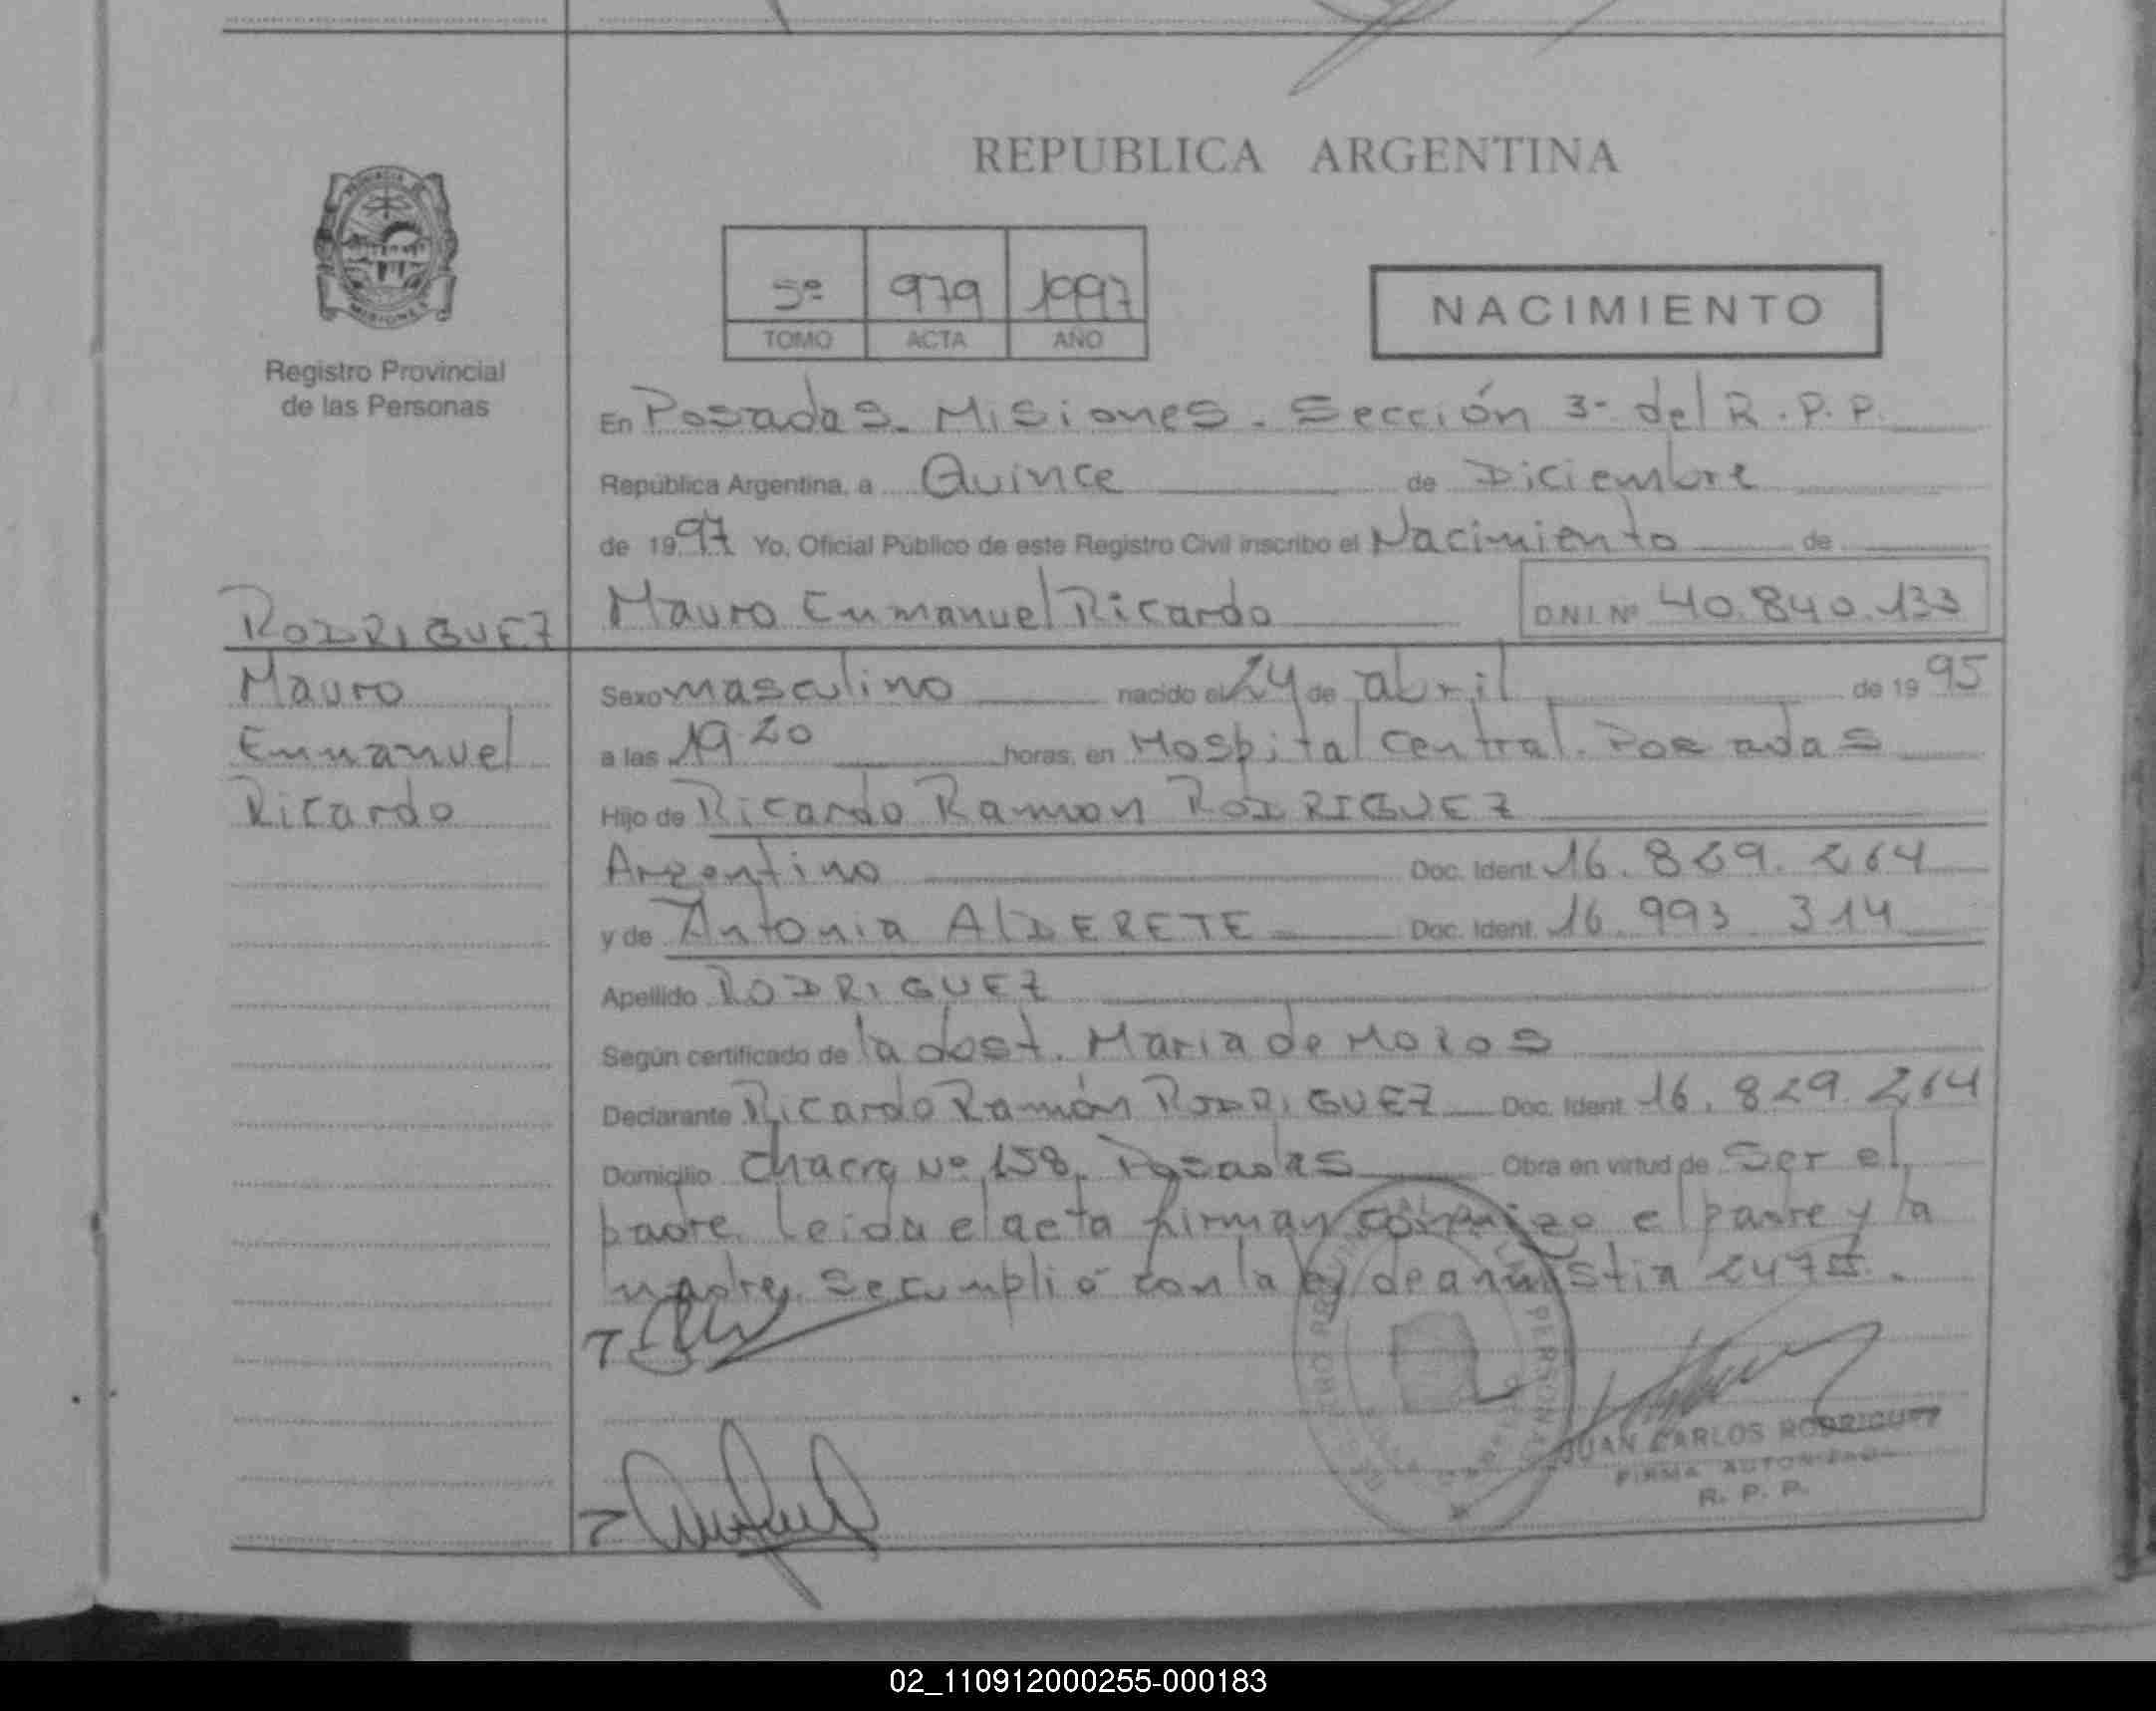 REPUBLICA ARGENTINA
PROVINCIA DE MISIONES
Registro Provincial
de las Personas
5º 979 1997
TOMO ACTA AÑO
NACIMIENTO
En Posadas. Misiones. Sección 3ª del R.P.P.
República Argentina, a Quince de Diciembre
de 1997 Yo, Oficial Público de este Registro Civil inscribo el Nacimiento de
Mauro Emmanuel Ricardo D.N.I. Nº 40.840.133
RODRIGUEZ
Mauro
Emmanuel
Ricardo
Sexo masculino nacido el 24 de abril de 1995
a las 19.20 horas, en Hospital Central. Posadas
Hijo de Ricardo Ramon RODRIGUEZ
Argentino Doc. Ident. 16.829.264
y de Antonia AlDERETE Doc. Ident. 16.993.314
Apellido RODRIGUEZ
Según certificado de la obst. Maria de
Declarante Ricardo Ramón RODRIGUEZ Doc. Ident. 16.829.264
Domicilio Chacra Nº 158. Posadas Obra en virtud de Ser el
padre. Leida el acta firman conmigo el padre y la
madre. Se cumplió con la ley de amnistia
JUAN CARLOS RODRIGUEZ
FIRMA AUTORIZADA
R. P. P.
02_110912000255-000183